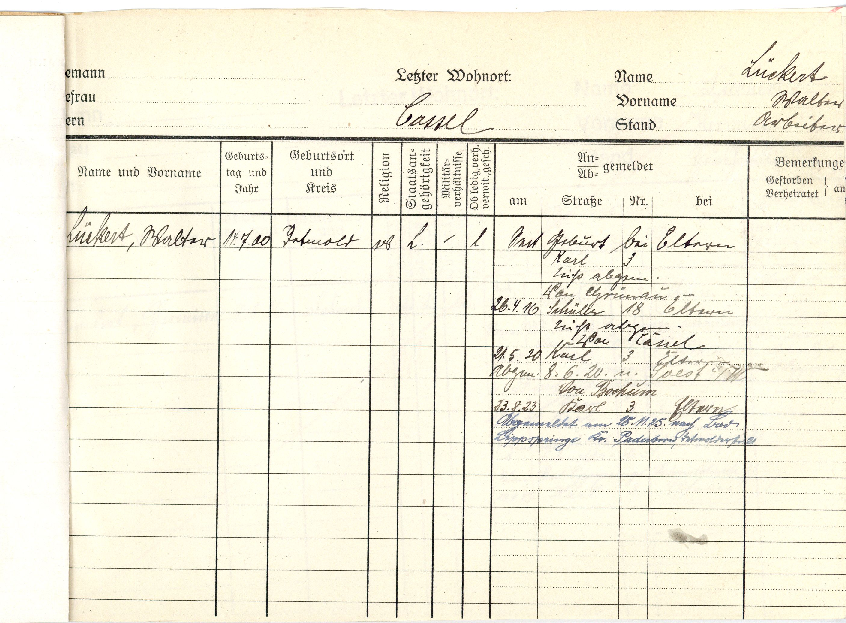 emann
efrau
ern
Letzter Wohnort:
Cassel
Name Lückert
Vorname Walter
Stand Arbeiter
Name und Vorname
Geburts-
tag und
Jahr
Geburtsort
und
Kreis
Religion
Staatsan-
gehörigkeit
Militär-
verhältnisse
Ob ledig, verh.
verwit., gesch.
An-
Ab- gemeldet
am Straße Nr. bei
Bemerkunge
Gestorben
Verheiratet } an
Lückert, Walter 17.7.00 Detmold L. / l Seit Geburt bei Eltern
Karl 3
abgem.
Von Grünau
26.4.16 Schüler 18 Eltern
Von Cassel
21.5.20 Karl 3 Eltern
Abgem. 8.6.20 n. Soest i/W
Von Bochum
23.8.23 Karl 3 Eltern
Abgemeldet am 25.11.25 nach Bad
Lippspringe Kr. Paderborn,